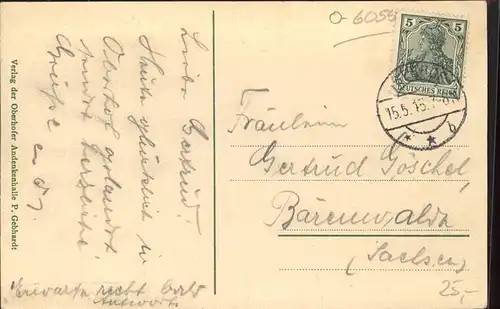 Liebe Gertrud!
Heute glücklich in
Oberhof gelandet
sendet herzliche
Grüße
Erwarte recht bald
Antwort.
Verlag der Oberhofer Andenkenhalle P. Gebhardt
6055
5 5
DEUTSCHES REICH
15.5.15.
* * b
Fräulein
Gertrud Göschel
Bärenwalde
(Sachsen)
25,-